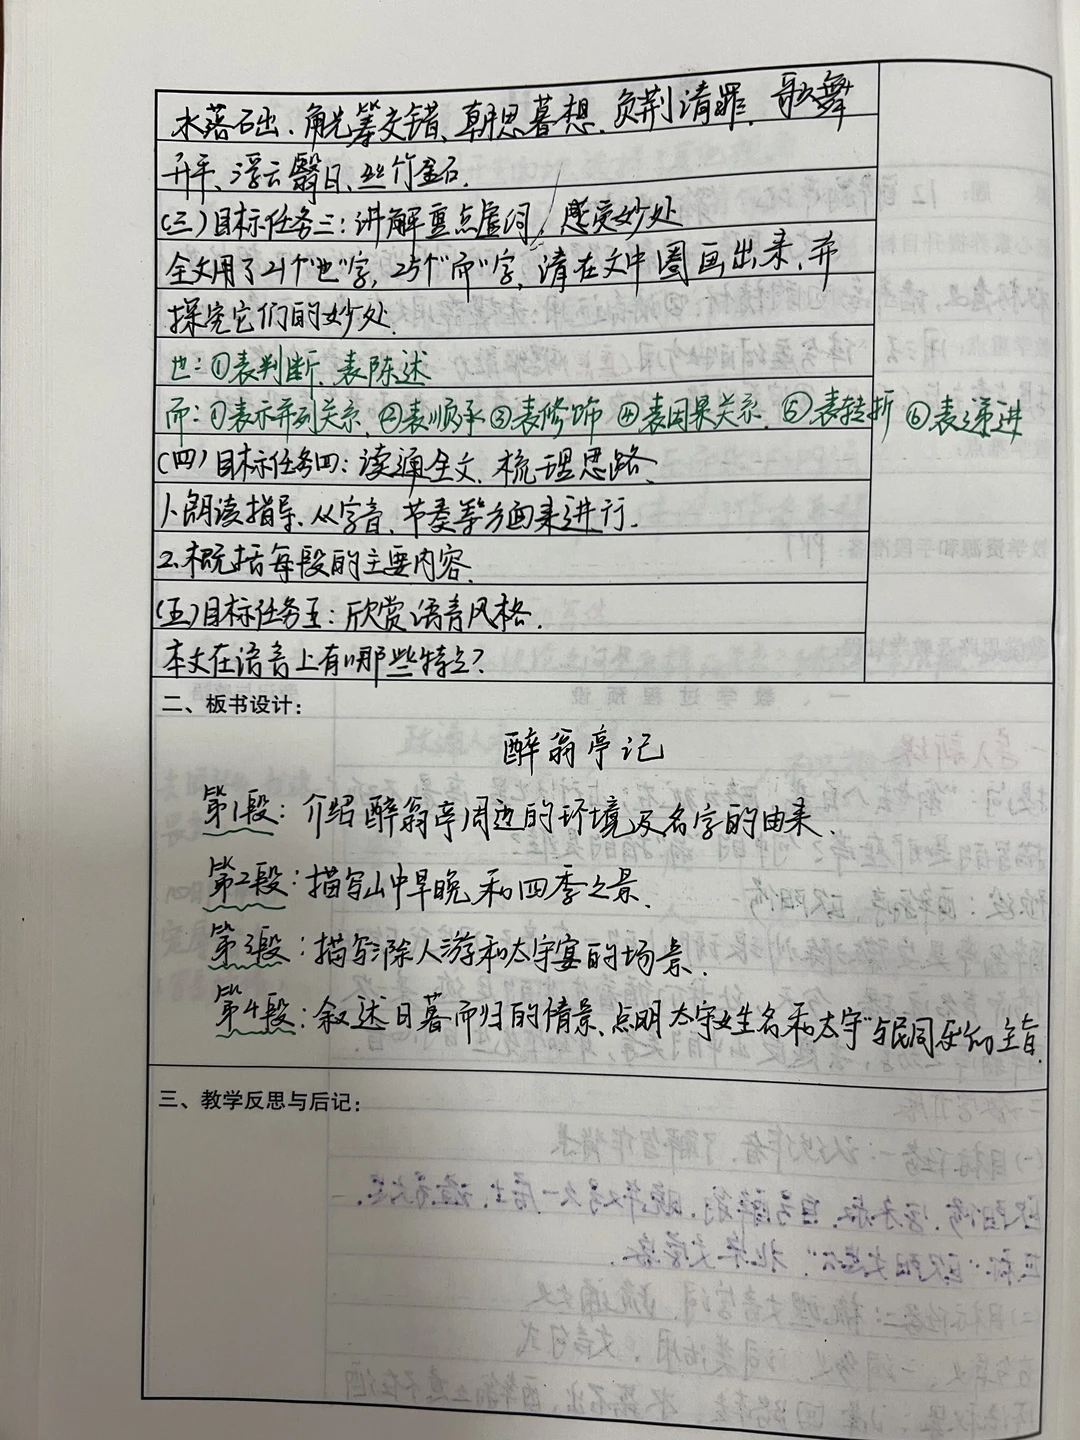 水落石出、觥筹交错、朝思暮想、负荆请罪、歌舞
升平、浮云翳日、丝竹金石.
(三)目标任务三:讲解重点虚词,感受妙处
全文用了21个"也"字,25个"而"字,请在文中圈画出来,并
探究它们的妙处.
也:①表判断、表陈述
而:①表示并列关系、②表顺承③表修饰④表因果关系、⑤表转折⑥表递进
(四)目标任务四:读通全文、梳理思路、
1.朗读指导、从字音、节奏等方面来进行.
2.概括每段的主要内容.
(五)目标任务五:欣赏语言风格.
本文在语言上有哪些特点?
二、板书设计:
醉翁亭记
第1段:介绍醉翁亭周边的环境及名字的由来.
第2段:描写山中早晚和四季之景.
第3段:描写滁人游和太守宴的场景.
第4段:叙述日暮而归的情景、点明太守姓名和太守"与民同乐"的主旨.
三、教学反思与后记: